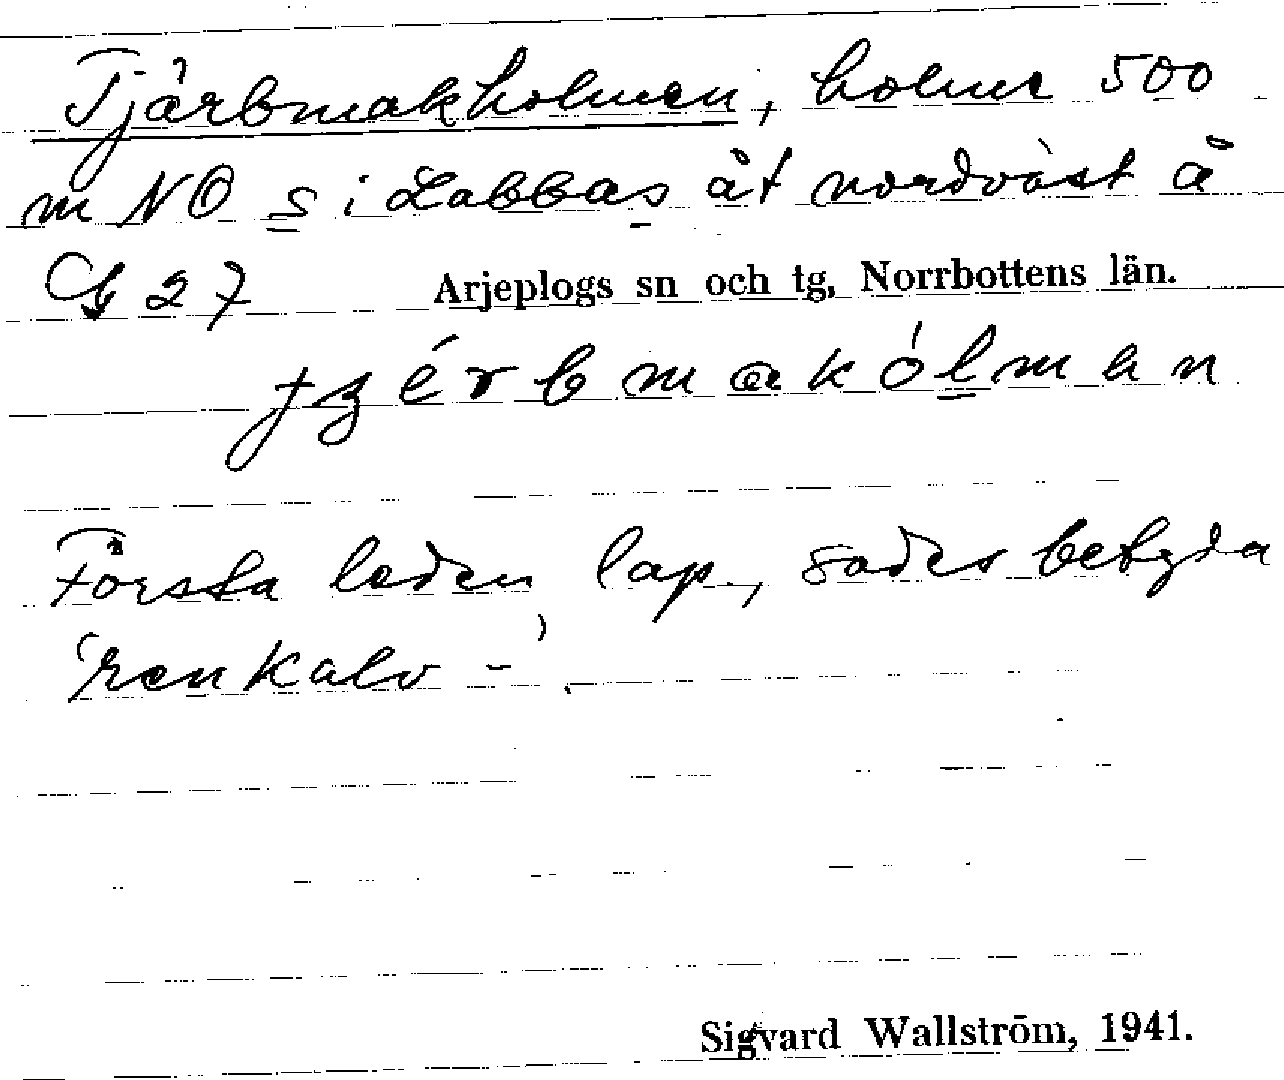 Tjärbmakholmen, holme 500
m NO s i Labbas åt nordväst å
G 27 Arjeplogs sn och tg, Norrbottens län.
érbmakólman
Första leden lap., sades betyda
'renkalv -'.
Sigvard Wallström, 1941.